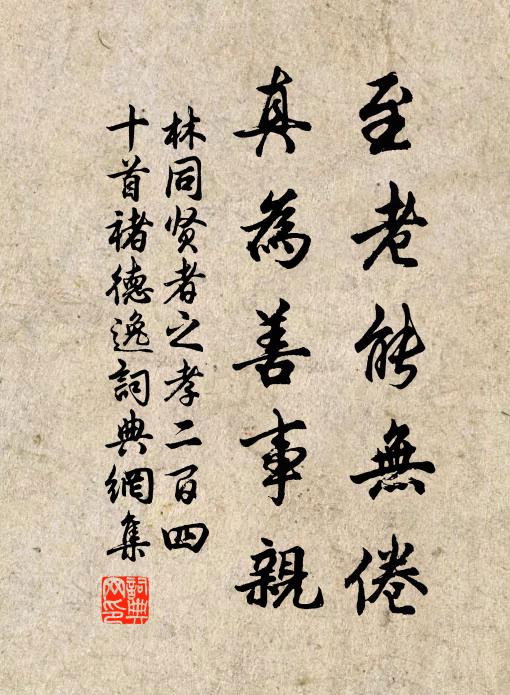 至老能無倦
真為善事親
林同贤者之孝二百四
十首褚德逸詞典網集